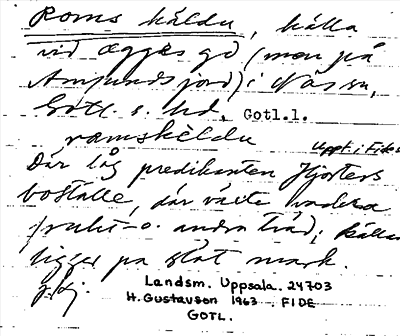 Roms källdu, källa
vid Ägges gd (men på
Amlunds jord) i Näs sn,
Gotl. s. hd, Gotl.l.
ramskèldu
Uppt. i Fide
Där låg predikanten Hjorters
boställe, där växte vackra
frukt- o. andra träd; källan
ligger på slät mark.
Landsm. Uppsala. 24703
H. Gustavson 1963 FIDE
GOTL.